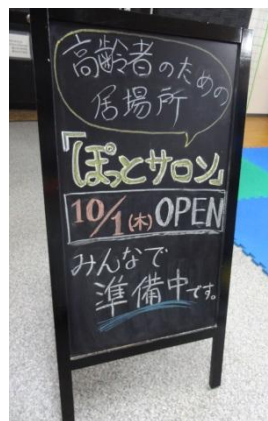 高齢者のための
居場所
「ぽっとサロン」
10/1(木) OPEN
みんなで
準備中です。